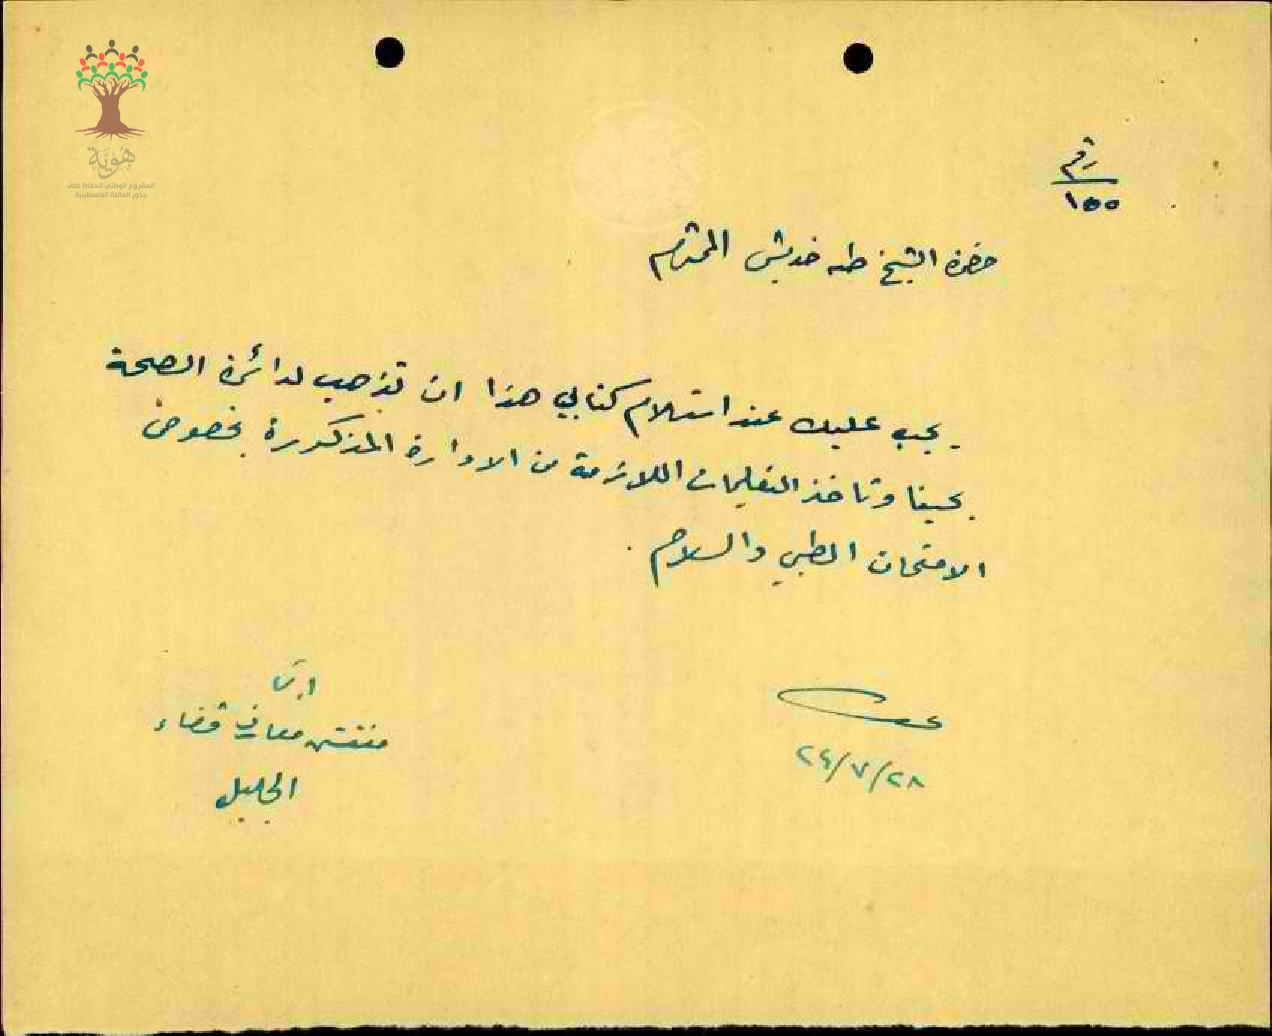 هُوِيَّة
المشروع الوطني للحفاظ على
جذور العائلة الفلسطينية
رقم
١٥٥
حضرة الشيخ طه خديش المحترم
يجب عليك عند استلام كتابي هذا ان تذهب لدائرة الصحة
بحيفا وتاخذ التعليمات اللازمة من الادارة المذكورة بخصوص
الامتحان الطبي والسلام.
مفتش معارف قضاء
الجليل
٢٤/٧/٢٨